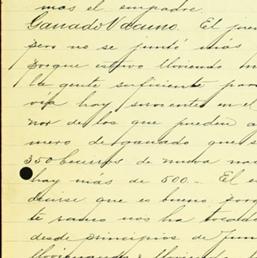 mas el empadre.
Ganado Vacuno. El pre
pero no se juntó más
porque estuvo lloviendo m
la gente suficiente par
via hay sirvientes en el
nor de los que pueden a
mero de ganado que s
350 becerros de nueva na
hay más de 500.- El e
decirse que es bueno porq
te ramo nos ha tocado
desde principios de Jun
lloviendo